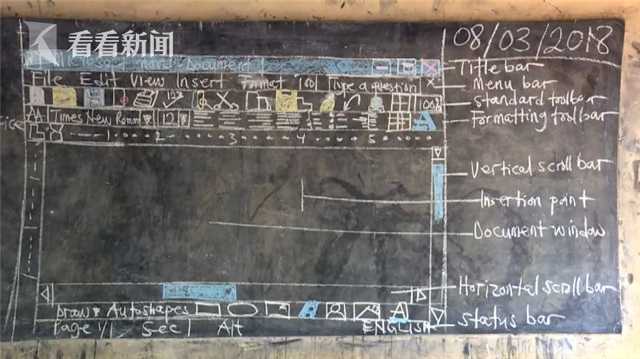 看看新闻
08/03/2018
Microsoft Word Document
Title bar
File Edit View Insert Format Tool Type a question
Menu bar
100%
Standard toolbar
Times New Roman 12
Formatting toolbar
1 2 3 4 5
Vertical scroll bar
Insertion point
Document window
Horizontal scroll bar
Draw Autoshapes
Page 1/1 Sec 1 A/t ENGLISH
status bar